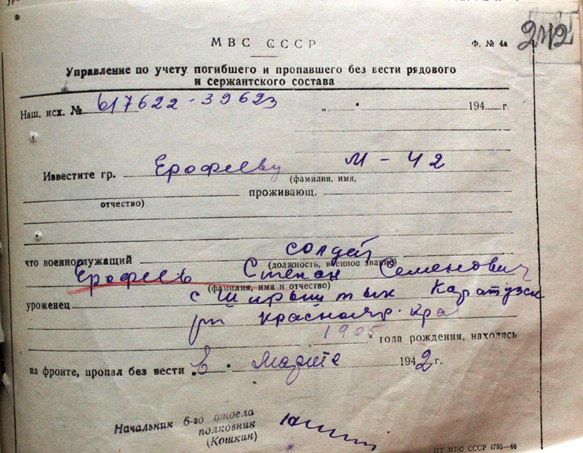 242
МВС СССР
Ф. № 4а
Управление по учету погибшего и пропавшего без вести рядового
и сержантского состава
Наш. исх. № 617622-39623 " " 194 г.
Известите гр. Ерофееву М-42
(фамилия, имя,
проживающ.
отчество)
что военнослужащий солдат
(должность, военное звание)
Ерофеев Степан Семенович
(фамилия, имя и отчество)
уроженец с Ширыштык Каратузск
рн Краснояр. края
1905 года рождения, находясь
на фронте, пропал без вести в марте 1942 г.
Начальник 6-го отдела
полковник
(Кошкин)
ЦТ МВС СССР